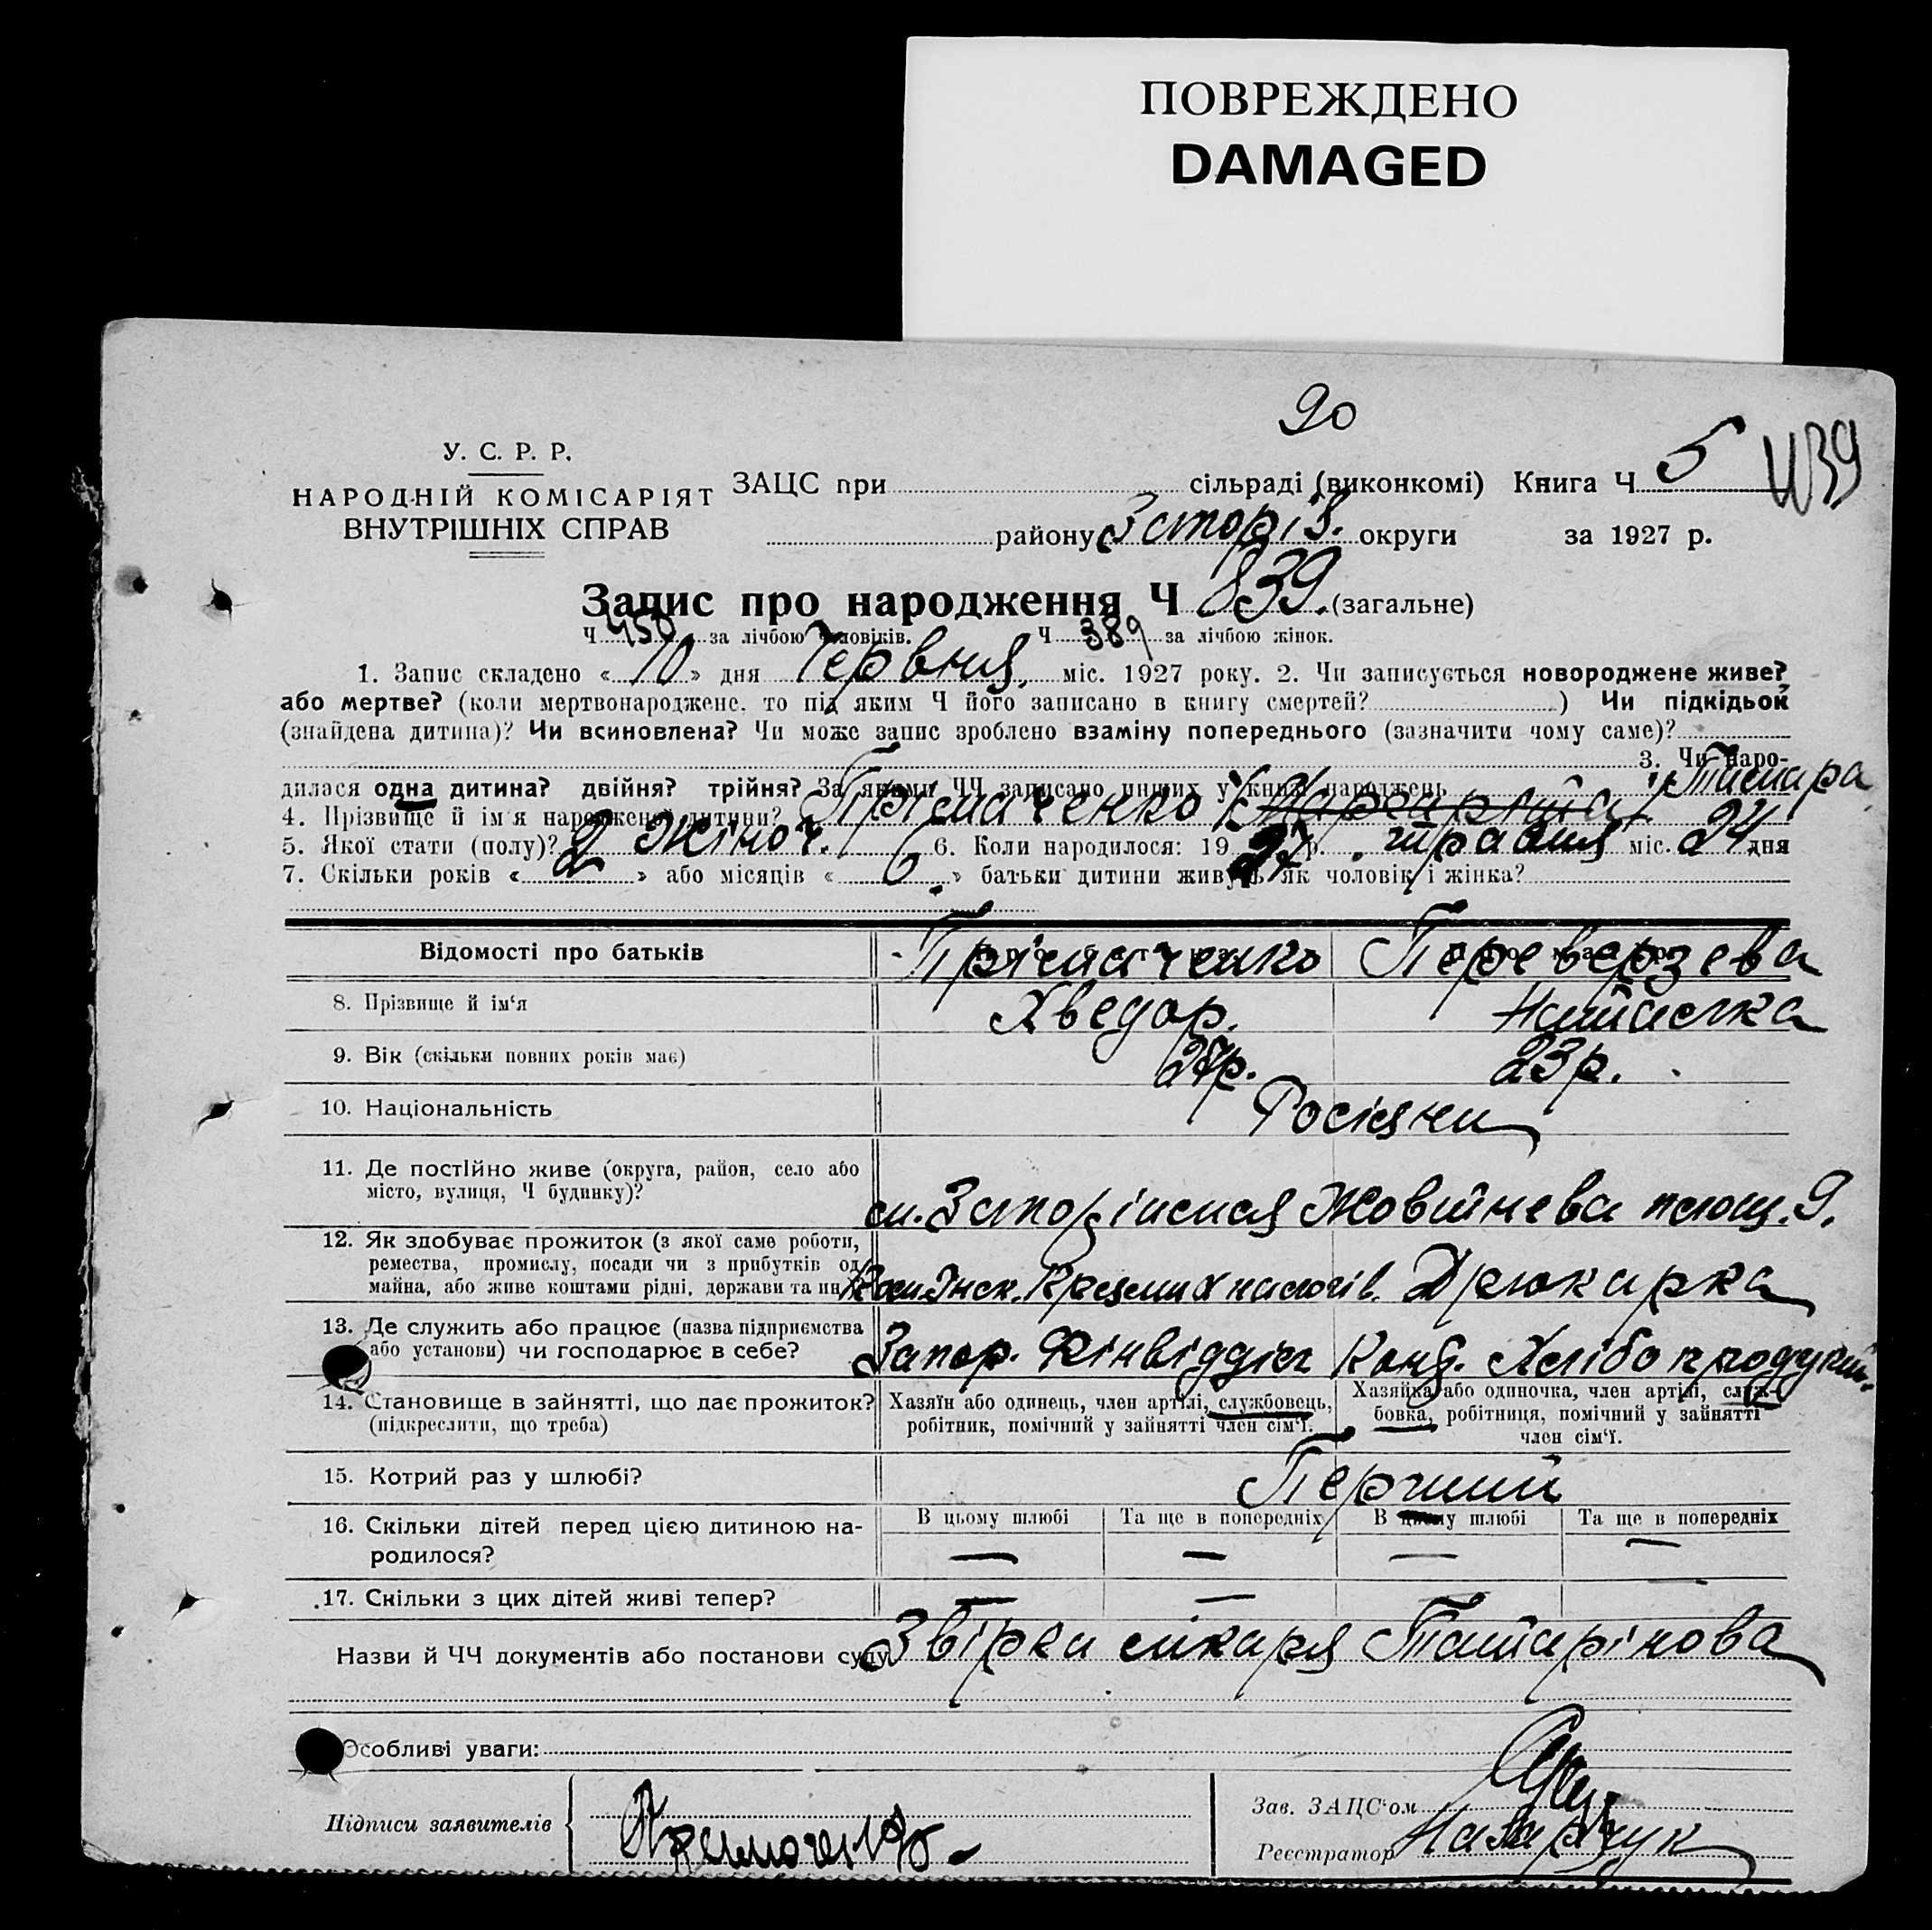 ПОВРЕЖДЕНО
DAMAGED
90
У. С. Р. Р.
НАРОДНІЙ КОМІСАРІЯТ
ВНУТРІШНІХ СПРАВ
ЗАЦС при сільраді (виконкомі) Книга Ч 5
району Запоріз. округи за 1927 р.
Запис про народження Ч 839. (загальне)
Ч 450 за лічбою чоловіків. Ч 389 за лічбою жінок.
1. Запис складено « 10 » дня Червня міс. 1927 року. 2. Чи записується новороджене живе?
або мертве? (коли мертвонароджене, то під яким Ч його записано в книгу смертей? ) Чи підкідьок
(знайдена дитина)? Чи всиновлена? Чи може запис зроблено взаміну попереднього (зазначити чому саме)?
3. Чи наро-
дилася одна дитина? двійня? трійня? За якими ЧЧ записано инших у книзі народжень
4. Прізвище й ім'я народженої дитини? Прімаченко Тамара
5. Якої стати (полу)? Жіноч. 6. Коли народилося: 1927 р. травня міс. 24 дня
7. Скільки років « 2 » або місяців « 6 » батьки дитини живуть як чоловік і жінка?
Відомості про батьків
Прімаченко Переверзева
8. Прізвище й ім‘я Хведор. Наталка
9. Вік (скільки повних років має) 27р. 23р.
10. Національність Росіяни
11. Де постійно живе (округа, район, село або
місто, вулиця, Ч будинку)?
м. Запоріжжя Жовтнева площ. 9.
12. Як здобуває прожиток (з якої саме роботи,
ремества, промислу, посади чи з прибутків од
майна, або живе коштами рідні, держави та ин.
Пом. Інск. Прямих налогів. Друкарка
13. Де служить або працює (назва підприємства
або установи) чи господарює в себе?
Запор. Фінвідділ Конт. Хлібопродукт.
14. Становище в зайнятті, що дає прожиток?
(підкреслити, що треба)
Хазяїн або одинець, член артілі, службовець,
робітник, помічний у зайнятті член сім‘ї.
Хазяйка або одиночка, член артілі, служ-
бовка, робітниця, помічний у зайнятті
член сім‘ї.
15. Котрий раз у шлюбі? Перший
16. Скільки дітей перед цією дитиною на-
родилося?
В цьому шлюбі Та ще в попередніх В цьому шлюбі Та ще в попередніх
— — — —
17. Скільки з цих дітей живі тепер? — — —
Назви й ЧЧ документів або постанови суду Звірка лікаря Татарінова
Особливі уваги:
Підписи заявителів
Зав. ЗАЦС‘ом
Реєстратор Назарчук